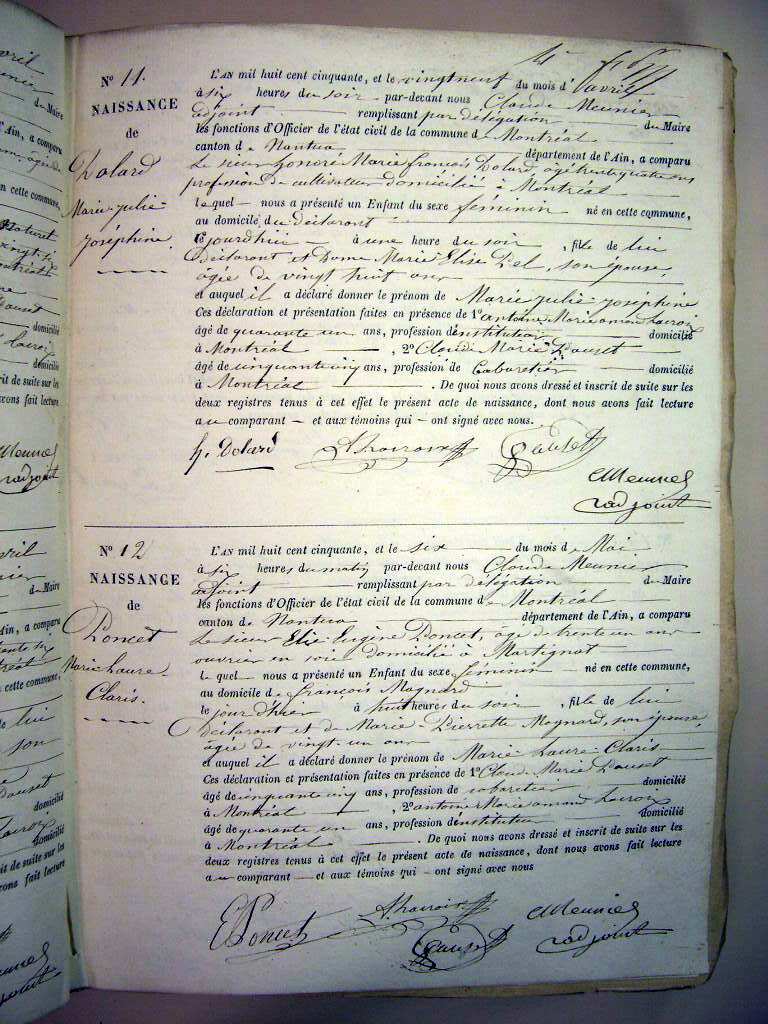 N° 11.
NAISSANCE
de
Dolard
Marie-julie-
joséphine.
L'AN mil huit cent cinquante, et le vingtneuf du mois d'avril
à six heures du soir par-devant nous Claude Meunier
adjoint remplissant par délégation du Maire
les fonctions d'Officier de l'état civil de la commune de Montréal
canton de Nantua département de l'Ain, a comparu
Le sieur honoré Marie françois Dolard, âgé trentequatre ans
profession de cultivateur domicilié à Montréal
lequel nous a présenté un Enfant du sexe féminin né en cette commune,
au domicile du déclarant
le jourdhui à une heure du soir, fille de lui
déclarant et Dame Marie Elise, son épouse,
agée de vingt huit ans
et auquel il a déclaré donner le prénom de Marie-julie-joséphine
Ces déclaration et présentation faites en présence de 1° antoine Marie amand Lacroix
âgé de quarante un ans, profession d'instituteur domicilié
à Montréal, 2° Claude Marie Dauset
âgé de cinquantecinq ans, profession de Cabaretier domicilié
à Montréal. De quoi nous avons dressé et inscrit de suite sur les
deux registres tenus à cet effet le présent acte de naissance, dont nous avons fait lecture
au comparant et aux témoins qui ont signé avec nous.
h. Dolard A. Lacroix Dauset
CMeunier
adjoint
N° 12
NAISSANCE
de
Poncet
Marie-Laure-
Claris.
L'AN mil huit cent cinquante, et le six du mois de Mai
à six heures du matin par-devant nous Claude Meunier
adjoint remplissant par délégation du Maire
les fonctions d'Officier de l'état civil de la commune de Montréal
canton de Nantua département de l'Ain, a comparu
Le sieur Elie Eugène Poncet, âgé de trente un ans
ouvrier en soie domicilié à Martignat
lequel nous a présenté un Enfant du sexe féminin né en cette commune,
au domicile de françois Magnard
le jour d'hier à huit heures du soir, fille de lui
déclarant et de Marie-Pierrette Magnard, son épouse
agée de vingt-un ans
et auquel il a déclaré donner le prénom de Marie-Laure-Claris
Ces déclaration et présentation faites en présence de 1° Claude Marie Dauset
âgé de cinquantecinq ans, profession de cabaretier domicilié
à Montréal, 2° antoine Marie amand Lacroix
âgé de quarante un ans, profession d'instituteur domicilié
à Montréal. De quoi nous avons dressé et inscrit de suite sur les
deux registres tenus à cet effet le présent acte de naissance, dont nous avons fait lecture
au comparant et aux témoins qui ont signé avec nous
EPoncet A. Lacroix CMeunier
Dauset adjoint